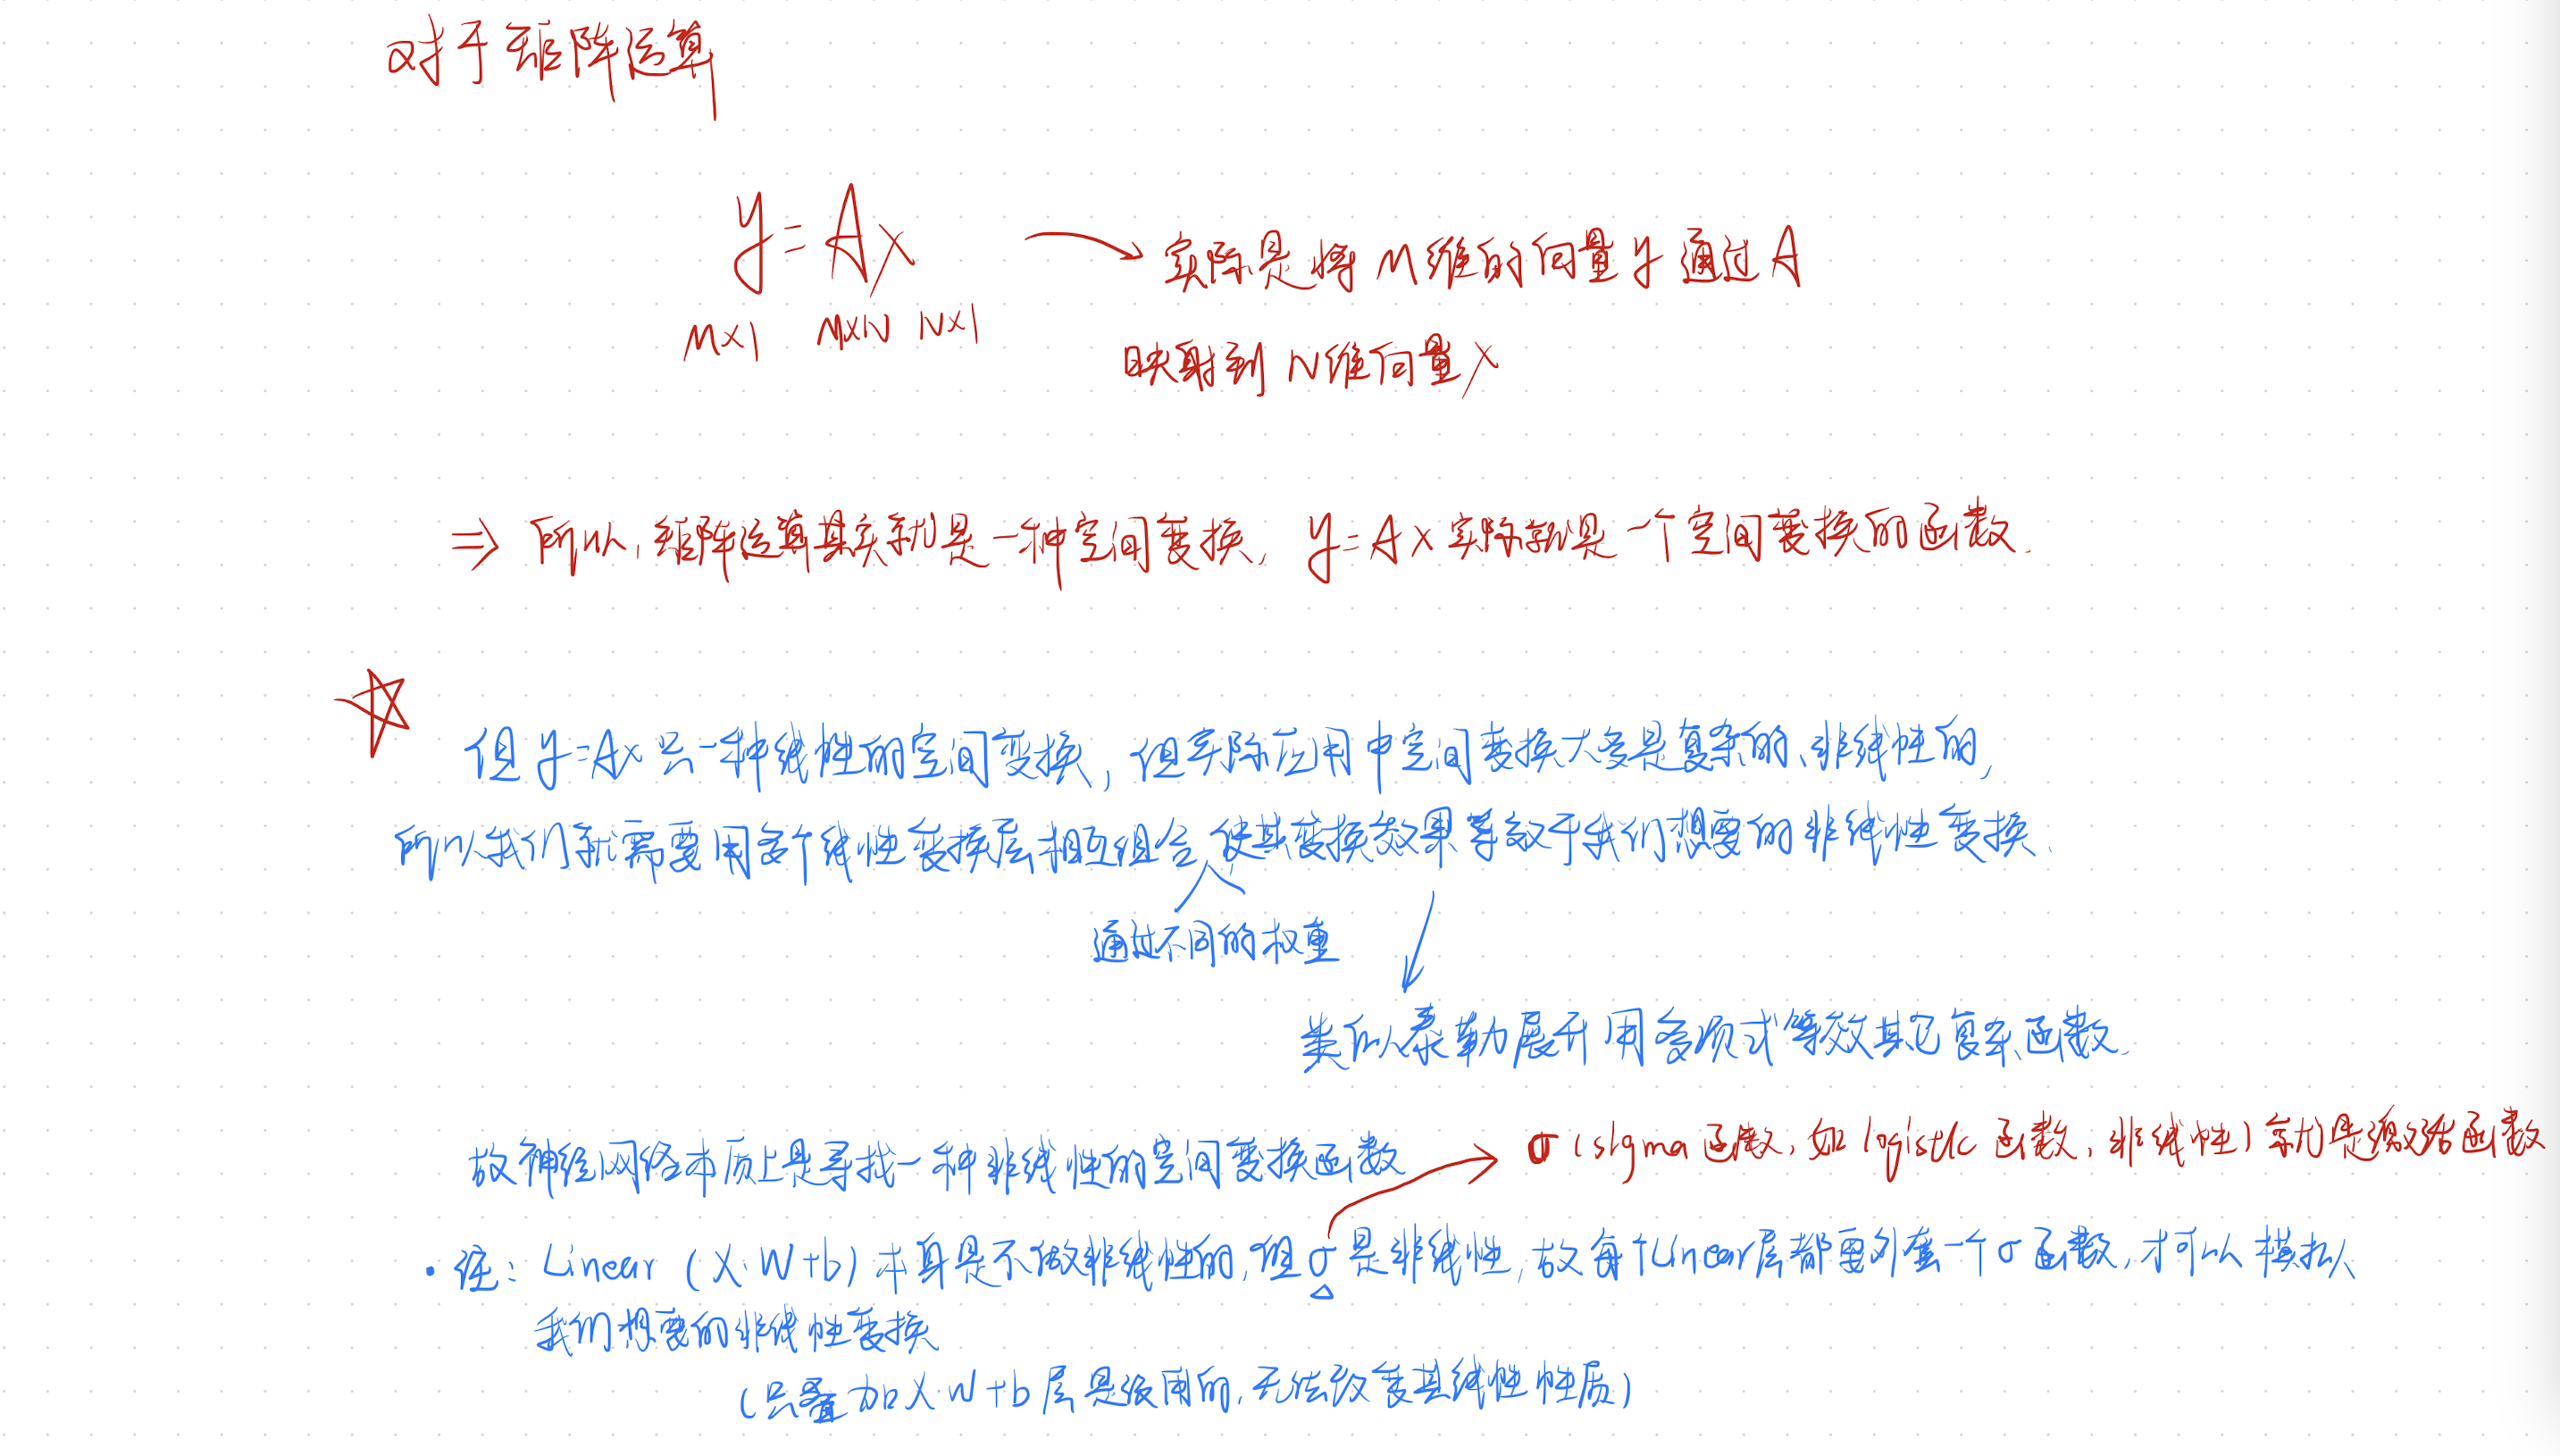 对于矩阵运算
y = Ax
M×1 M×N N×1
实际是将 M维的向量 y 通过 A
映射到 N维向量 x
⇒ 所以, 矩阵运算其实就是一种空间变换, y = Ax 实际就是一个空间变换的函数.
☆
但 y=Ax 只一种线性的空间变换, 但实际应用中空间变换大多是复杂的、非线性的,
所以我们就需要用多个线性变换层相互组合 使其变换效果等效于我们想要的非线性变换.
通过不同的权重
类似泰勒展开用多项式等效其它复杂函数.
故神经网络本质上是寻找一种非线性的空间变换函数
σ (sigma 函数, 如 logistic 函数, 非线性) 就是激活函数
· 注: Linear (X·W+b) 本身是不做非线性的, 但 σ 是非线性, 故每个Linear层都要外套一个 σ 函数, 才可以模拟
我们想要的非线性变换
(只叠加 X·W+b 层是没用的, 无法改变其线性性质)